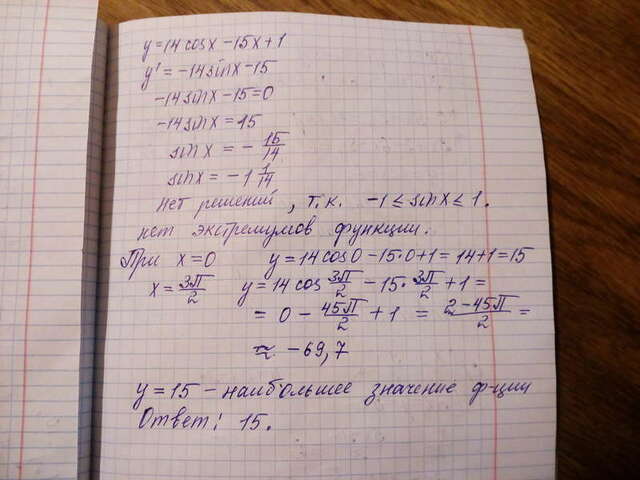 y=14cosx-15x+1
y'=-14sinx-15
-14sinx-15=0
-14sinx=15
sinx = - 15/14
sinx = -1 1/14
нет решений, т.к. -1 ≤ sinx ≤ 1.
нет экстремумов функции.
При x=0 y=14cos0-15·0+1=14+1=15
x= 3π/2 y=14cos 3π/2 - 15· 3π/2 +1=
= 0 - 45π/2 + 1 = 2-45π/2 =
≈ -69,7
y=15 - наибольшее значение ф-ции
Ответ: 15.